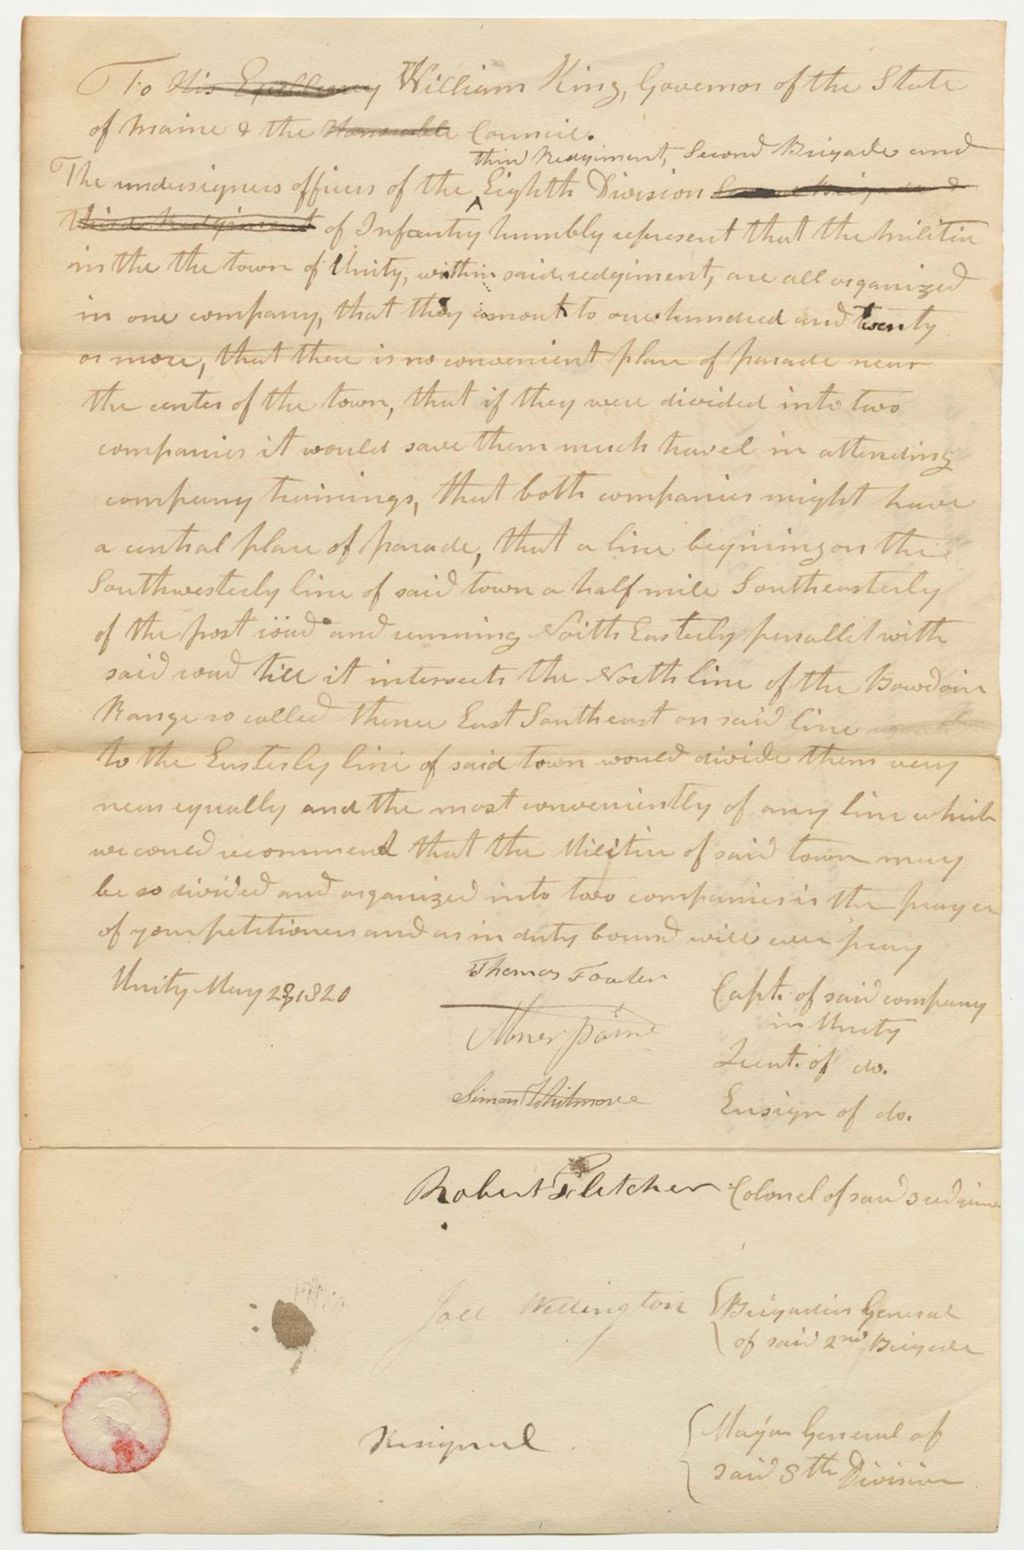 To His Excellency William King, Governor of the State
of Maine & the Honorable Council.
third Redgiment, Second Brigade and
The undersigners officers of the ^ Eighth Division Second Brigade &
third Redgiment of Infantry humbly represent that the militia
in the the town of Unity, within said redgiment, are all organized
in one company, that they amount to one hundred and twenty
or more, that there is no convenient place of parade near
the center of the town, that if they were divided into two
companies it would save them much travel in attending
company trainings, that both companies might have
a central place of parade, that a line begining on the
Southwesterly line of said town a half mile Southeasterly
of the post road and running North Easterly parallel with
said road till it intersects the North line of the Bowdoin
Range so called thence East Southeast on said line
to the Easterly line of said town would divide them very
near equally and the most conveniently of any line which
we coued recommend that the Militia of said town may
be so divided and organized into two companies is the prayer
of your petitioners and as in duty bound will ever pray
Unity May 23, 1820
Thomas Fowler Capt. of said company
in Unity
Abner Paine Lieut. of do.
Simon Whitmore Ensign of do.
Robert Fletcher Colonel of said 3 redgiment
Joel Wellington Brigadier General
of said 2nd Brigade
Resigned Major General of
said 8th Division